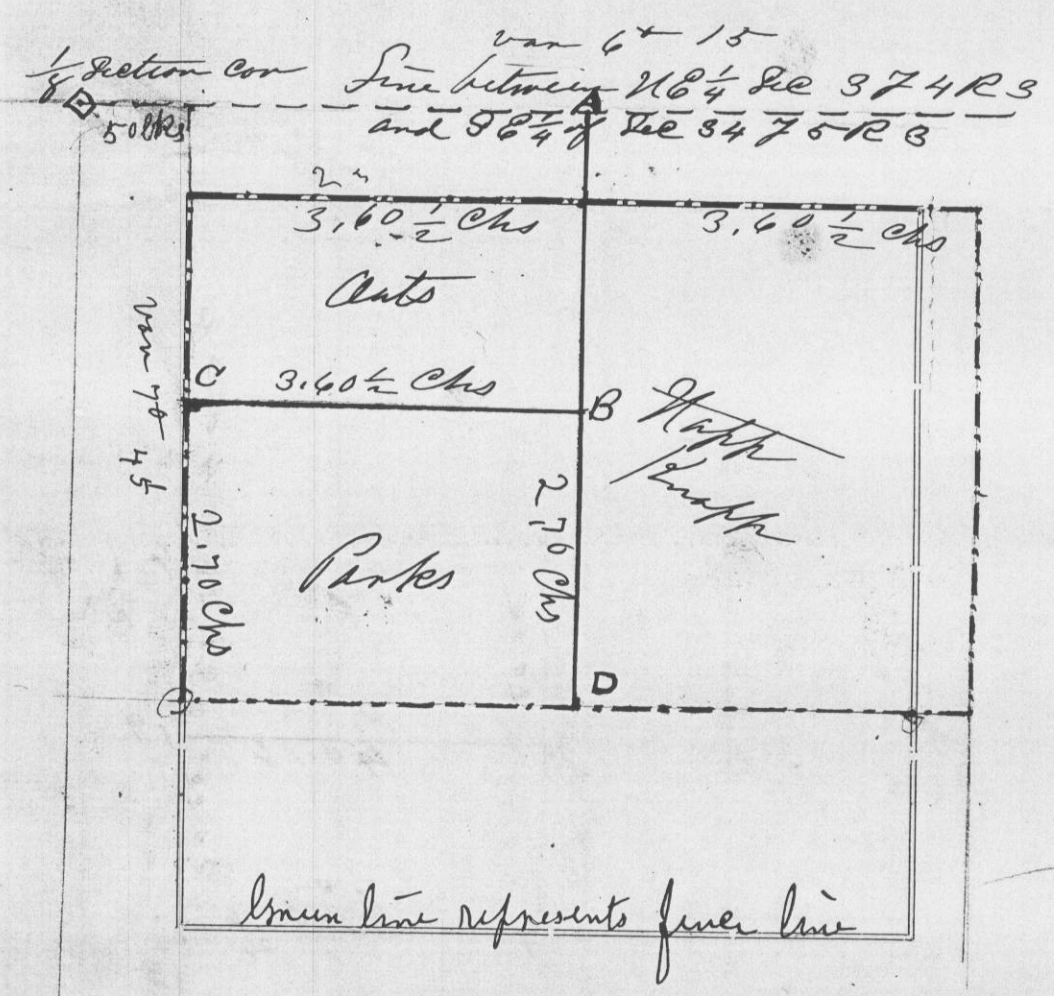 van 6° 15
1/8 Section Cor
Line between NE 1/4 Sec 3 T 4 R 3
50 lks
and SE 1/4 of Sec 34 T 5 R 3
A
3,60 1/2 Chs
3,60 1/2 Chs
van 7° 45
C
3.60 1/2 Chs
B
Knapp
2.70 Chs
2.70 Chs
Parks
D
Green line represents fence line